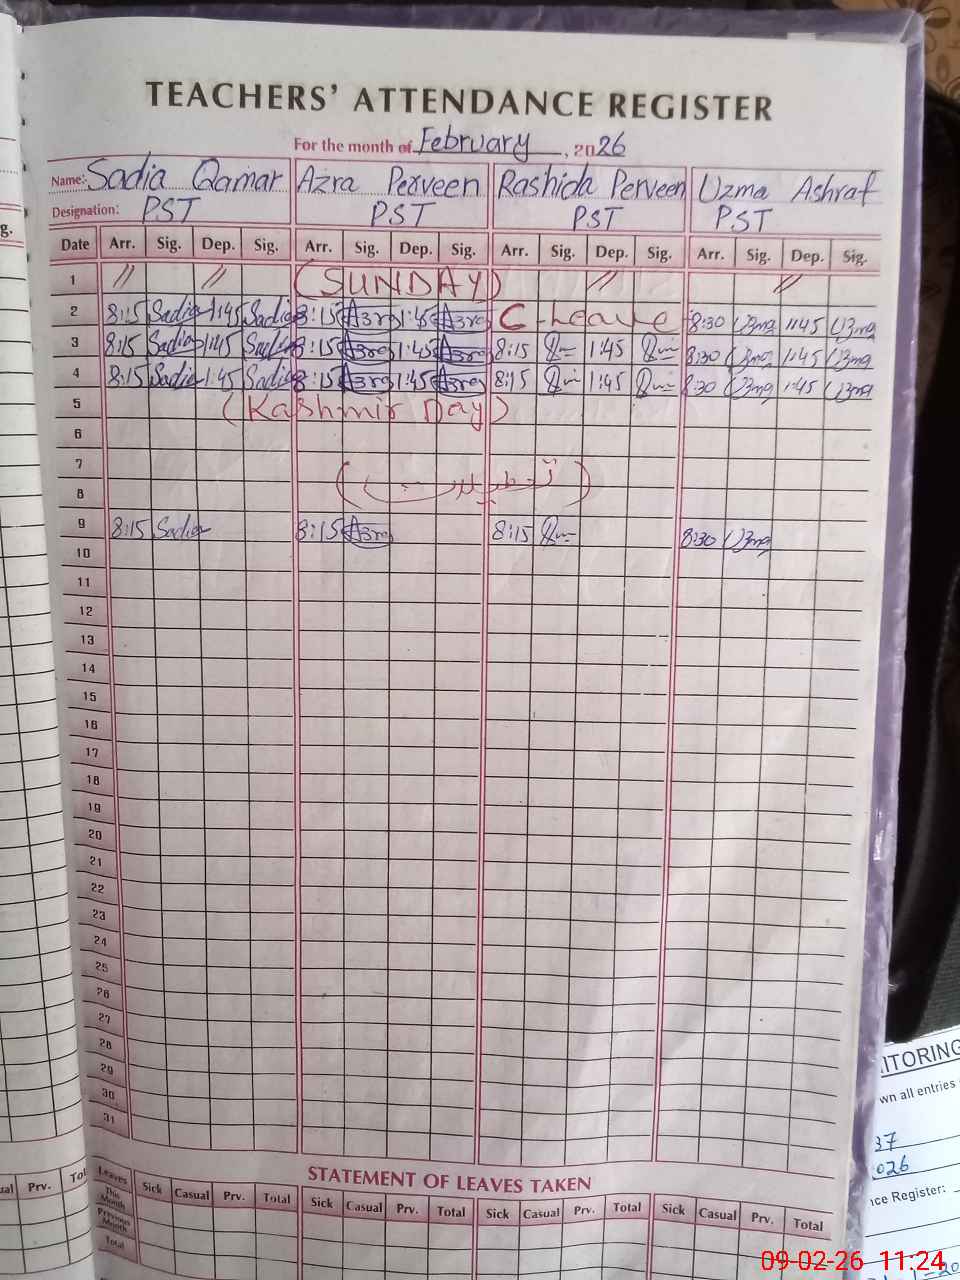 TEACHERS' ATTENDANCE REGISTER
For the month of February, 2026
Name: Sadia Qamar Azra Perveen Rashida Perveen Uzma Ashraf
Designation: PST PST PST PST
Date Arr. Sig. Dep. Sig. Arr. Sig. Dep. Sig. Arr. Sig. Dep. Sig. Arr. Sig. Dep. Sig.
1 // // (SUNDAY) // //
2 8:15 Sadia 1:45 Sadia 8:15 Azra 1:45 Azra C-Leave 8:30 Uzma 1:45 Uzma
3 8:15 Sadia 1:45 Sadia 8:15 Azra 1:45 Azra 8:15 1:45 8:30 Uzma 1:45 Uzma
4 8:15 Sadia 1:45 Sadia 8:15 Azra 1:45 Azra 8:15 1:45 8:30 Uzma 1:45 Uzma
5 (Kashmir Day)
6
7
8 (تعطیلات)
9 8:15 Sadia 8:15 Azra 8:15 8:30 Uzma
10
11
12
13
14
15
16
17
18
19
20
21
22
23
24
25
26
27
28
29
30
31
STATEMENT OF LEAVES TAKEN
Leaves Sick Casual Prv. Total Sick Casual Prv. Total Sick Casual Prv. Total Sick Casual Prv. Total
This Month
Previous Month
Total
g.
Prv.
ITORING
wn all entries
37
026
nce Register:
09-02-26 11:24